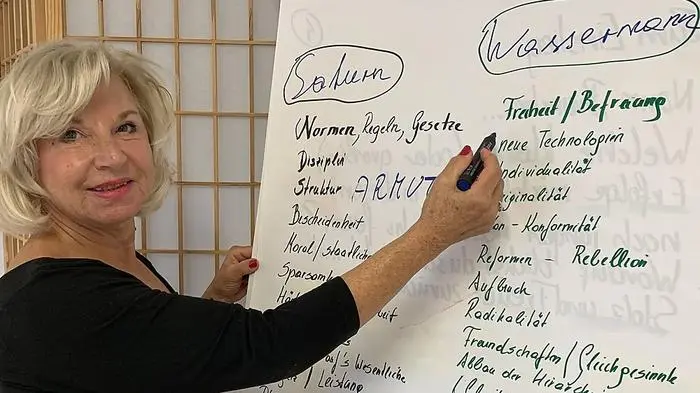 Saturn
(Normen, Regeln, Gesetze
Disziplin
Struktur ARMUT
Bescheidenheit
Moral/staatliche
Sparsam
Wesentliche
Leistung
Wassermann
Freiheit/Befreiung
neue Technologien
Individualität
Originalität
- Konformität
Reformen - Rebellion
Aufbruch
Radikalität
Freundschaften/Gleichgesinnte
Abbau der Hierarch